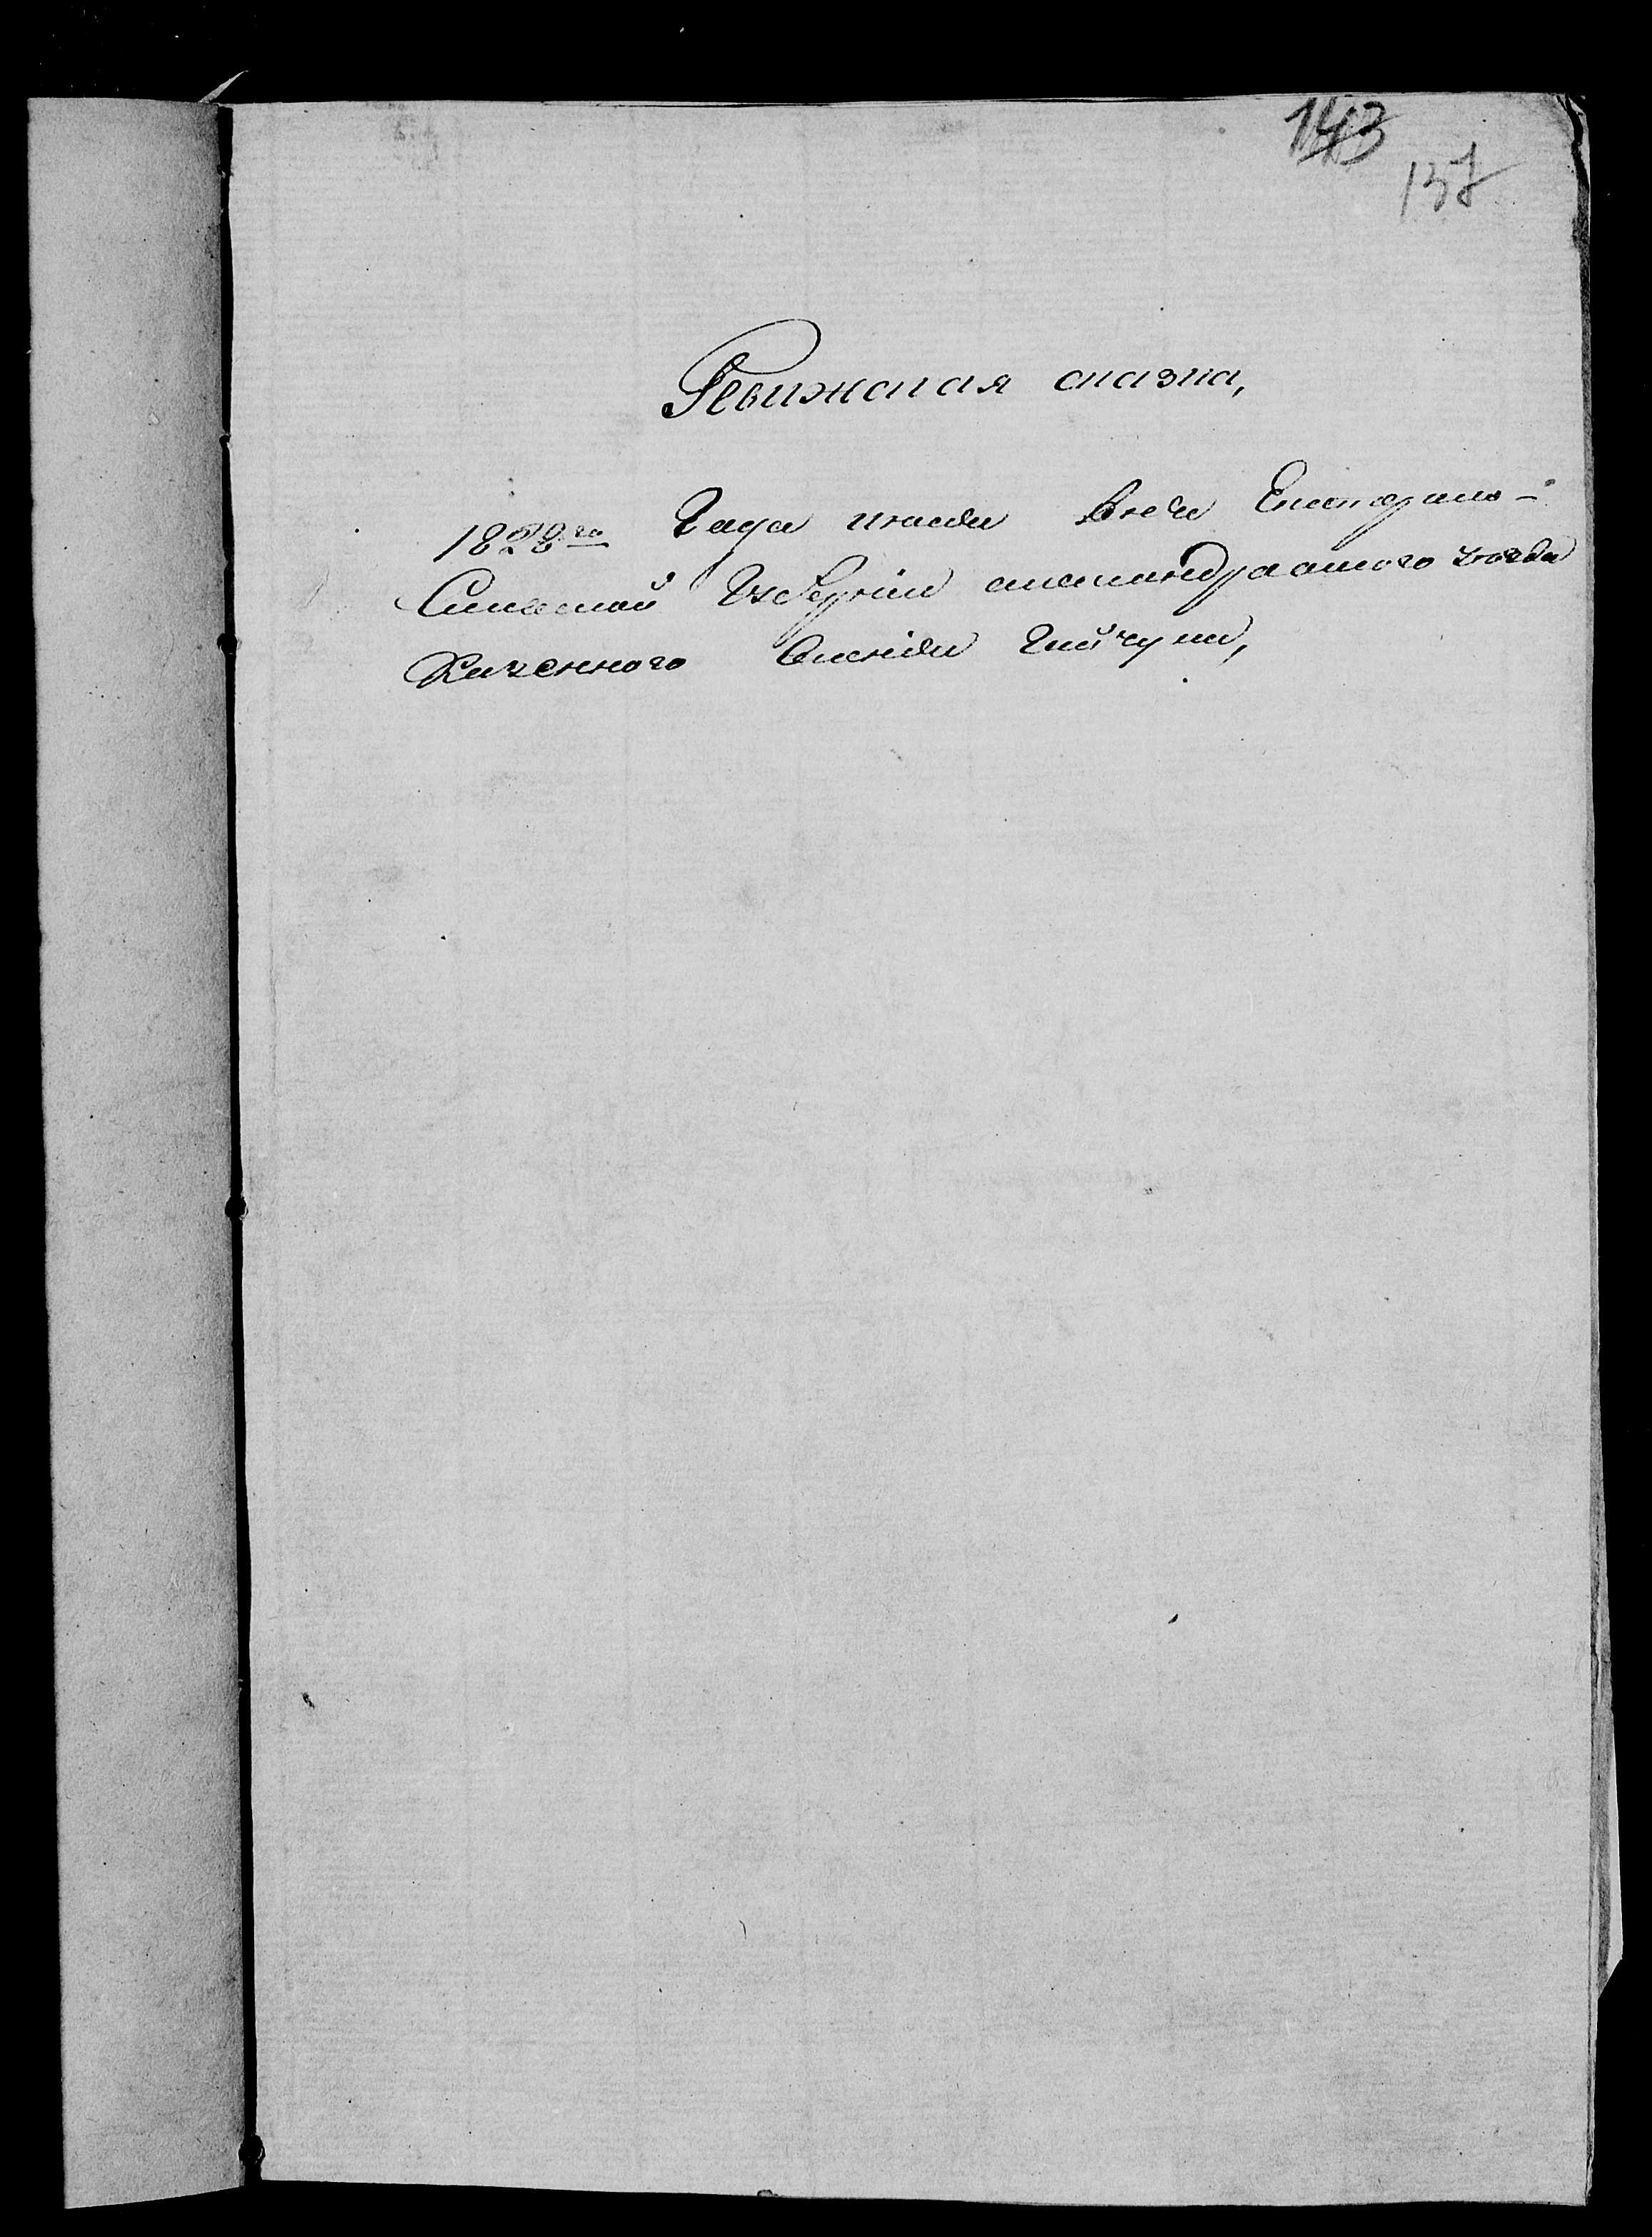 143
137
Ревижская сказка,
1828го Года июля дня Екатерино-
Славской Губерніи александрийского уезда
Казенного Селенія